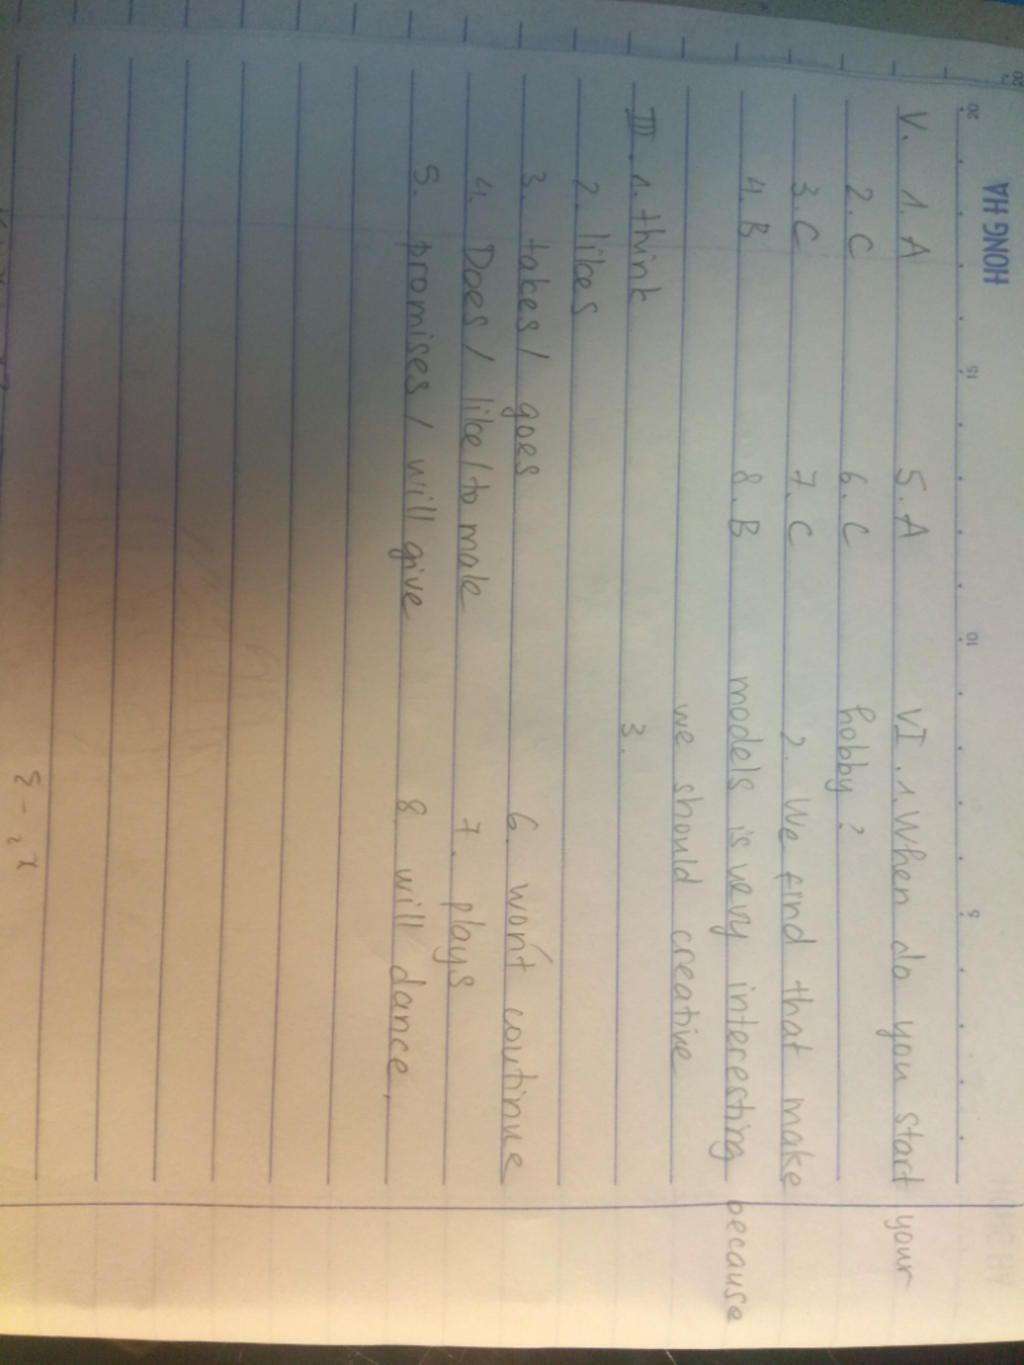 HONG HA
20 15 10 5
V. 1. A 5. A VI. 1. When do you start your
2. C 6. C hobby?
3. C 7. C 2. We find that make
4. B 8. B models is very interesting because
we should creative
III. 1. think 3.
2. likes
3. takes / goes 6. won't coutinue
4. Does / like / to male 7. plays
5. promises / will give 8. will dance.